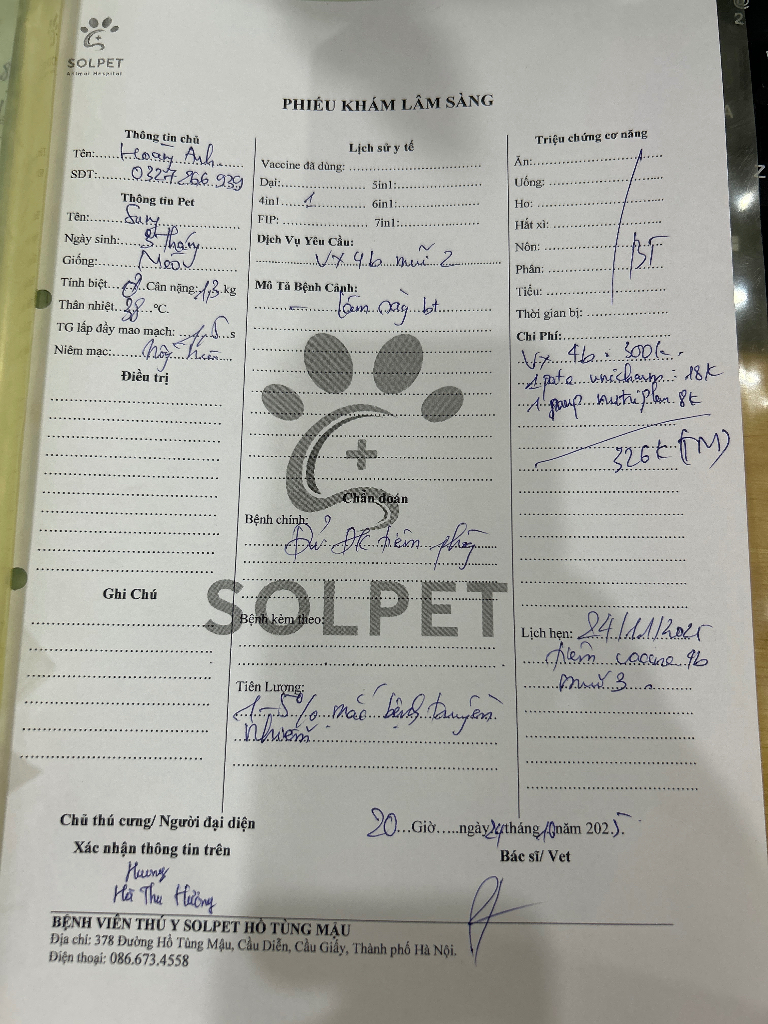 SOLPET
Animal Hospital
PHIẾU KHÁM LÂM SÀNG
Thông tin chủ
Tên: Hoàng Anh
SDT: 0327 266 939
Thông tin Pet
Tên: Sury
Ngày sinh: 3 tháng
Giống: Mèo
Tính biệt Cân nặng: 1,3 kg
Thân nhiệt 38 °C
TG lấp đầy mao mạch: 1,5 s
Niêm mạc: hồng
Điều trị
Ghi Chú
Lịch sử y tế
Vaccine đã dùng:
Dại: 5in1:
4in1 1 6in1:
FIP: 7in1:
Dịch Vụ Yêu Cầu:
Vx 4b mũi 2
Mô Tả Bệnh Cảnh:
lâm sàng bt
Chẩn đoán
Bệnh chính:
Đủ ĐK tiêm phòng
SOLPET
Bệnh kèm theo:
Tiên Lượng:
1-5% mắc bệnh truyền
nhiễm
Triệu chứng cơ năng
Ăn:
Uống:
Ho:
Hắt xì:
Nôn: BT
Phân:
Tiểu:
Thời gian bị:
Chi Phí:
Vx 4b: 300k
1 pate unicharm: 18K
1 nutriplan 8k
326K (TM)
Lịch hẹn: 24/11/2025
tiêm vaccine 4b
mũi 3
Chủ thú cưng/ Người đại diện
Xác nhận thông tin trên
Hương
Hà Thu Hường
20 Giờ.....ngày 24 tháng 10 năm 2025.
Bác sĩ/ Vet
BỆNH VIỆN THÚ Y SOLPET HỒ TÙNG MẬU
Địa chỉ: 378 Đường Hồ Tùng Mậu, Cầu Diễn, Cầu Giấy, Thành phố Hà Nội.
Điện thoại: 086.673.4558